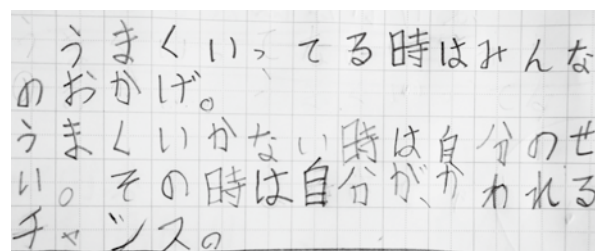 うまくいってる時はみんな
のおかげ。
うまくいかない時は自分のせ
い。その時は自分が、かわれる
チャンスの